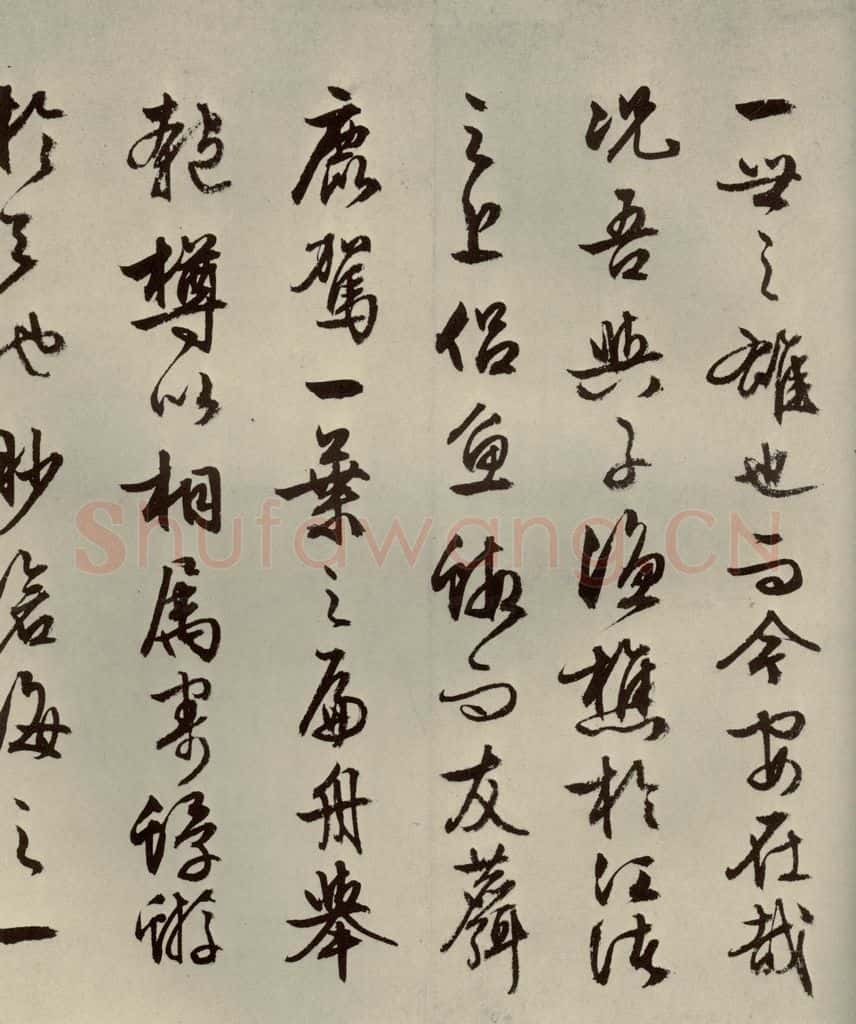 一世之雄也而今安在哉
况吾與子漁樵於江渚
之上侣魚蝦而友麋
鹿駕一葉之扁舟舉
匏樽以相属寄蜉蝣
於天地眇滄海之一
Shufawang.CN